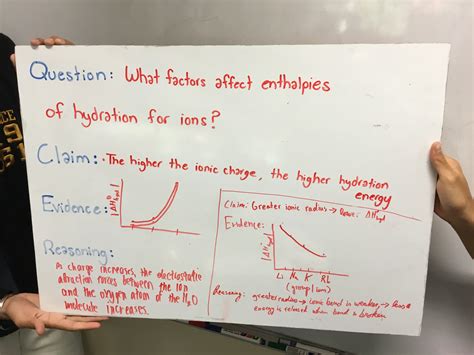 Question: What factors affect enthalpies
of hydration for ions?
Claim: The higher the ionic charge, the higher hydration
energy
Evidence:
|ΔH°hyd|
Reasoning:
As charge increases, the electrostatic
attraction forces between the ion
and the oxygen atom of the H₂O
molecule increases.
Claim: Greater ionic radius → lower ΔH°hyd
Evidence:
Li Na K Rb
(group 1 ions)
Reasoning: greater radius → ionic bond is weaker, → less
energy is released when bond is broken